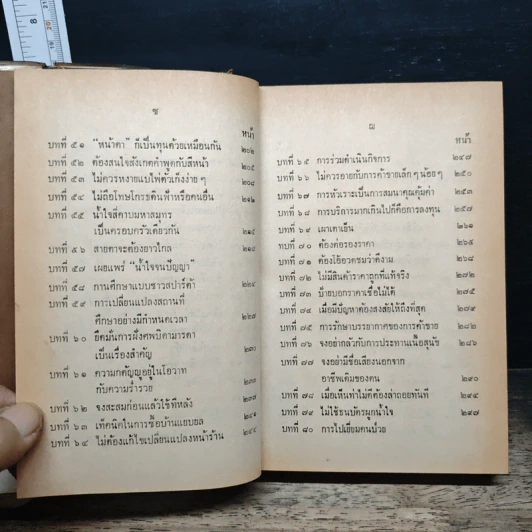 8
ช
หน้า
บทที่ ๕๑ "หน้าตา" ก็เป็นทุนด้วยเหมือนกัน ๒๐๒
บทที่ ๕๒ ต้องสนใจสังเกตคำพูดกับสีหน้า ๒๐๕
บทที่ ๕๓ ไม่ควรหงายแบไพ่ตัวเก็งง่าย ๆ ๒๐๘
บทที่ ๕๔ ไม่ถือโทษโกรธดินฟ้าหรือคนอื่น ๒๑๒
บทที่ ๕๕ น้ำใจสี่คาบมหาสมุทร
เป็นครอบครัวเดียวกัน ๒๑๕
บทที่ ๕๖ สายตาจะต้องยาวไกล ๒๑๘
บทที่ ๕๗ เผยแพร่ "น้ำใจจนปัญญา"
บทที่ ๕๘ การศึกษาแบบชาวสปาร์ต้า
บทที่ ๕๙ การเปลี่ยนแปลงสถานที่
ศึกษาอย่างมีกำหนดเวลา ๒๒๗
บทที่ ๖๐ ยึดมั่นการฝังศพบิดามารดา
เป็นเรื่องสำคัญ ๒๓๐
บทที่ ๖๑ ความกตัญญูอยู่ในโอวาท
กับความร่ำรวย
บทที่ ๖๒ จงสะสมก่อนแล้วใช้ทีหลัง
บทที่ ๖๓ เทคนิคในการซื้อบ้านแยบยล ๒๔๑
บทที่ ๖๔ ไม่ต้องแก้ไขเปลี่ยนแปลงหน้าร้าน ๒๔๔
ฌ
หน้า
บทที่ ๖๕ การร่วมดำเนินกิจการ ๒๔๗
บทที่ ๖๖ ไม่ควรอายกับการค้าขายเล็ก ๆ น้อย ๆ ๒๕๐
บทที่ ๖๗ การหัวเราะเป็นการสมนาคุณคุ้มค่า ๒๕๓
บทที่ ๖๘ การบริการมากเกินไปก็คือการลงทุน ๒๕๗
บทที่ ๖๙ เผาเตาเย็น ๒๖๑
บทที่ ๗๐ ต้องต่อรองราคา
บทที่ ๗๑ ต้องโอ้อวดชมว่าดีงาม
บทที่ ๗๒ ไม่มีสินค้าราคาถูกที่แท้จริง ๒๗๒
บทที่ ๗๓ ป้ายบอกราคาเชื่อไม่ได้ ๒๗๕
บทที่ ๗๔ เมื่อมีปัญหาต้องสงสัยให้ถึงที่สุด
บทที่ ๗๕ การรักษาบรรยากาศของการค้าขาย
บทที่ ๗๖ จงอย่ากลัวกับการประทานเนื้อสุนัข ๒๘๖
บทที่ ๗๗ จงอย่ามีชื่อเสียงนอกจาก
อาชีพเดิมของตน ๒๙๐
บทที่ ๗๘ เมื่อเห็นท่าไม่ดีต้องล่าถอยทันที ๒๙๔
บทที่ ๗๙ ไม่ใช้ธนบัตรผูกน้ำใจ ๒๙๗
บทที่ ๘๐ การไปเยี่ยมคนป่วย